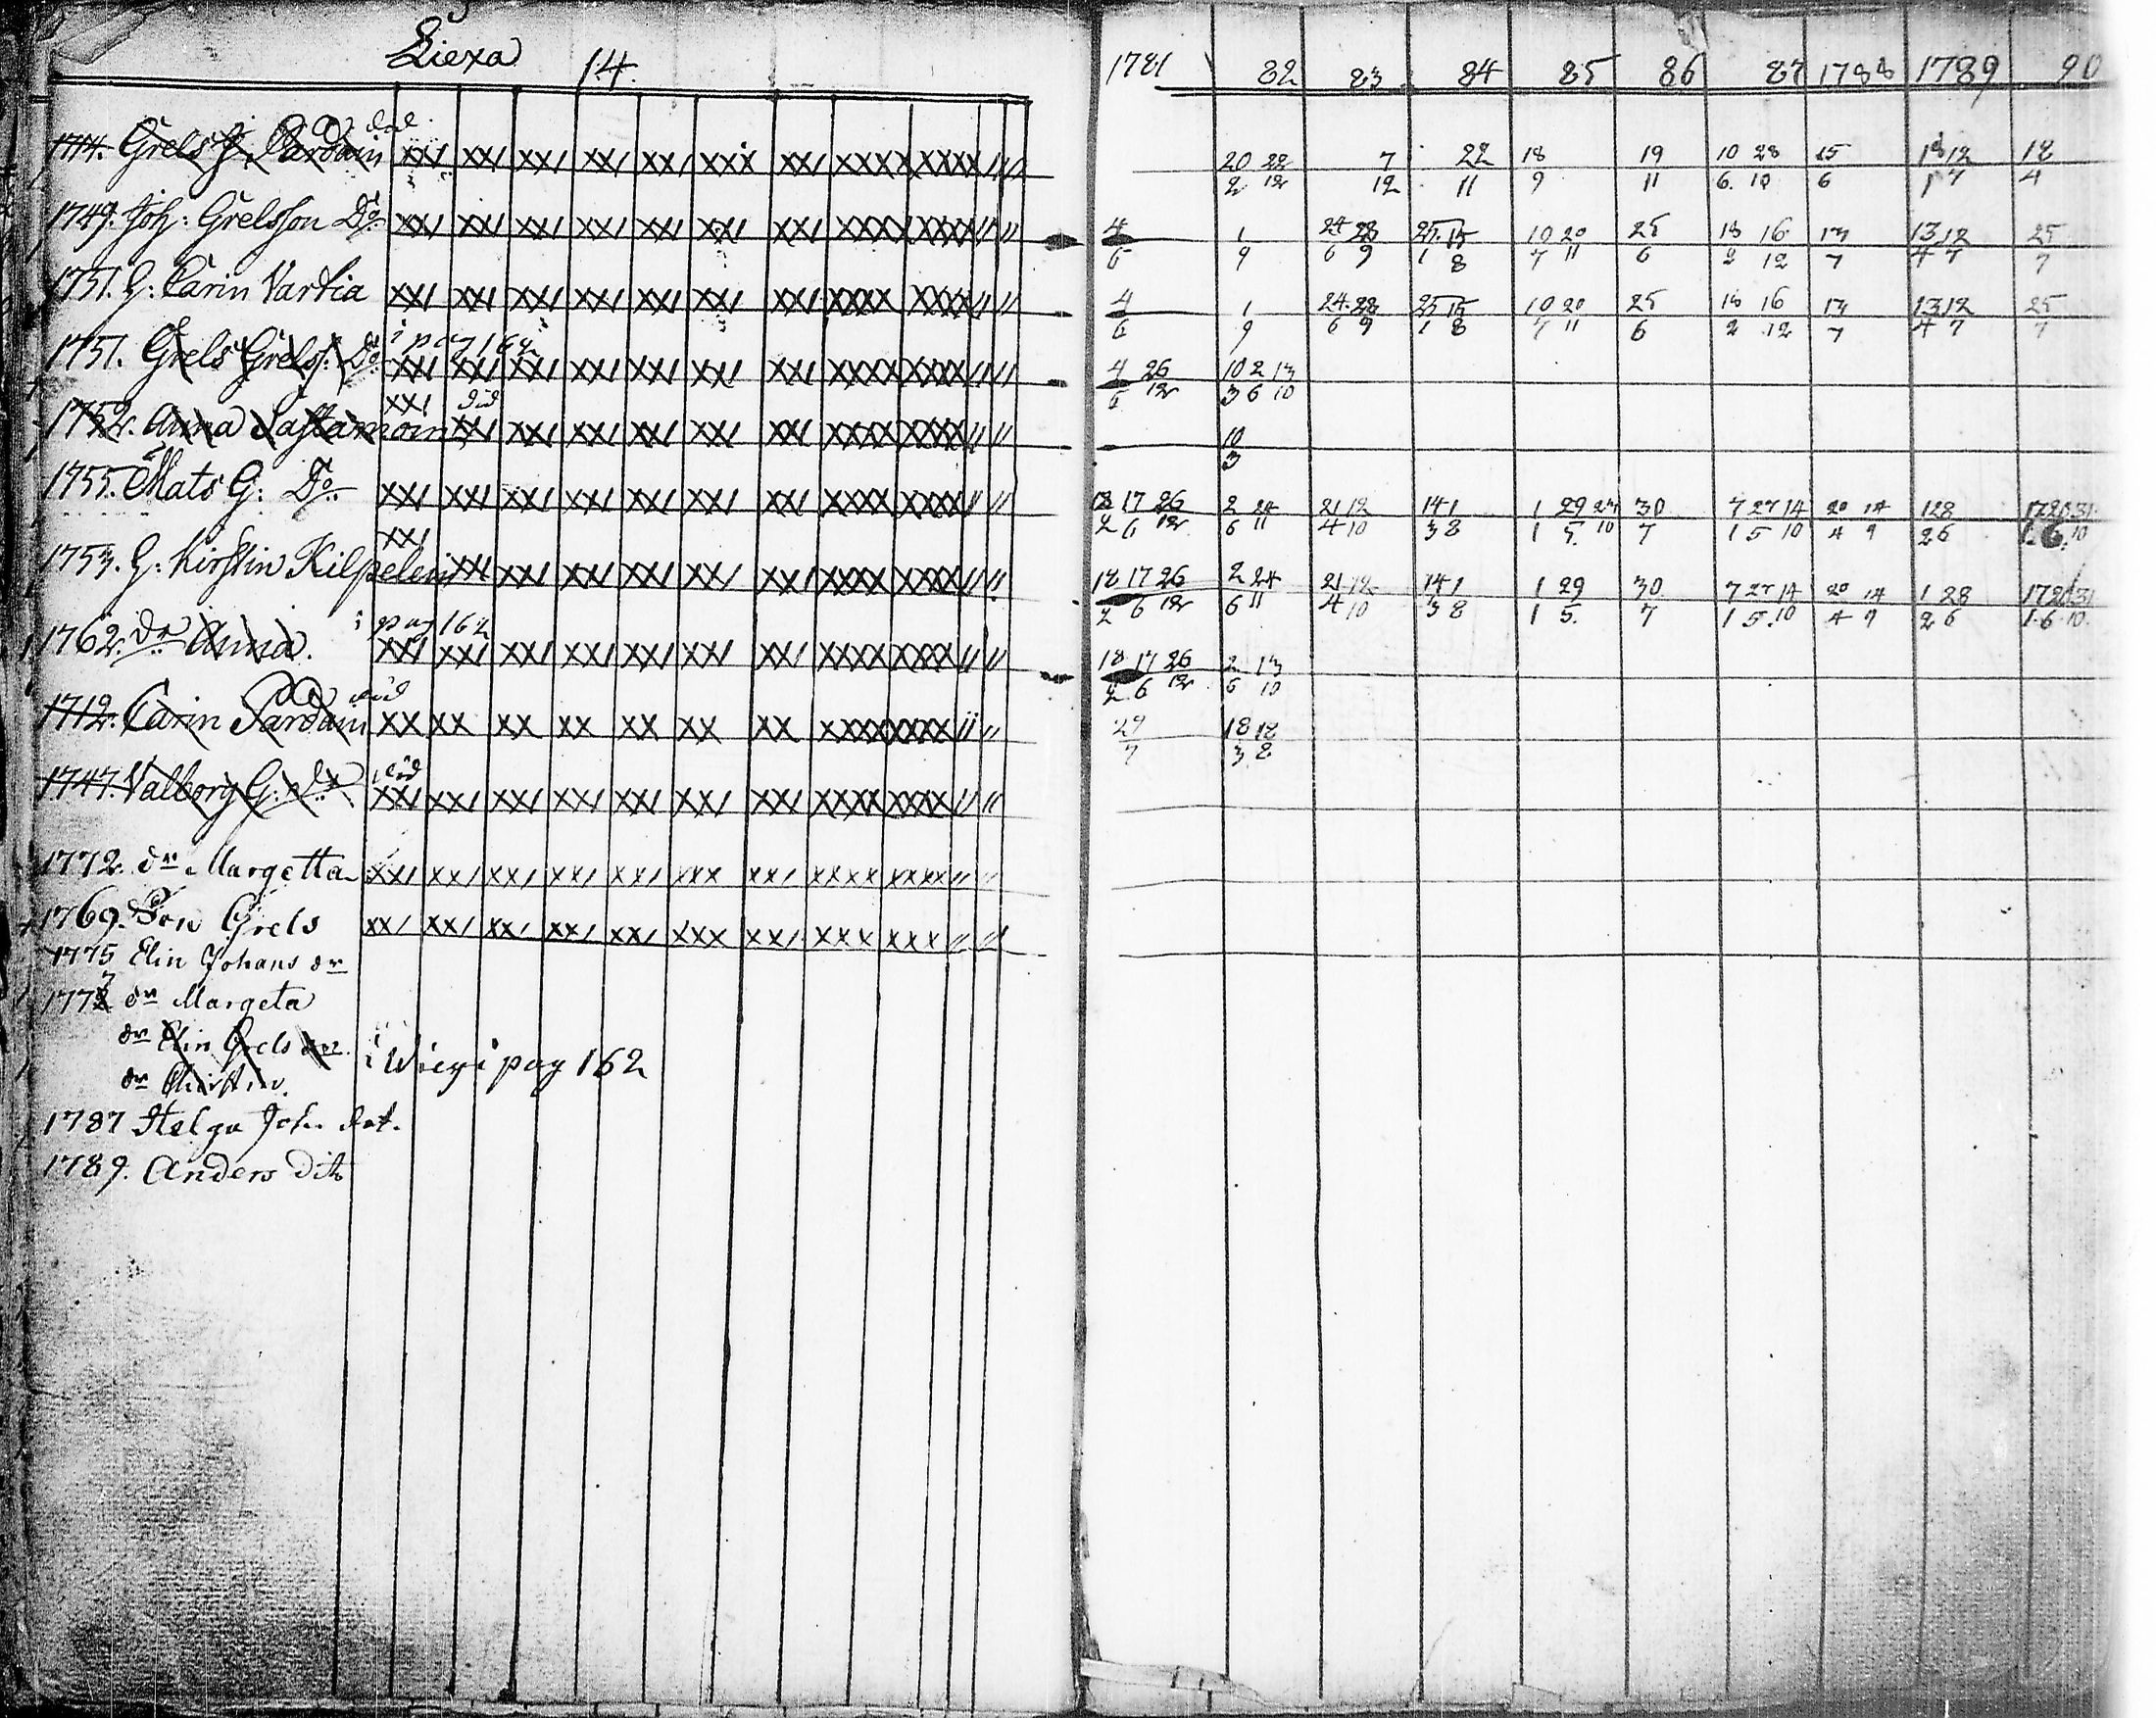 Liexa 14.
1781 82 83 84 85 86 87 1788 1789 90
1714. Grels G. Pardain död
20/2 22/12 7/12 22/11 18/9 19/11 10/6 28/10 15/6 12/7 18/4
1749. Joh: Grelsson Do
4/6 1/9 24/6 28/9 25/1 15/8 10/7 20/11 25/6 18/2 16/12 13/7 13/4 12/7 25/7
1751. H: Carin Vartia
4/6 1/9 24/6 28/9 25/1 15/8 10/7 20/11 25/6 18/2 16/12 13/7 13/4 12/7 25/7
1751. Grels Grels: Do i pag 162
4/6 26/12 10/3 2/6 13/10
1752. Anna Sastamoin död
10/3
1755. Mats G: Do
18/2 17/6 26/12 2/6 24/11 21/4 12/10 14/3 1/8 1/1 29/5 27/10 30/7 7/1 27/5 14/10 20/4 14/9 1/2 28/6 17/1 20/6 31/10
1753. H: Kirstin Kilpelen
18/2 17/6 26/12 2/6 24/11 21/4 12/10 14/3 1/8 1/1 29/5 30/7 7/1 27/5 14/10 20/4 14/9 1/2 28/6 17/1 20/6 31/10
1762. dr Anna. i pag 162
18/2 17/6 26/12 2/6 13/10
1712. Carin Pardain död
29/7 18/3 18/8
1747. Valborg G: dr död
1772. dr Margetta
1769. Son Grels
1775 Elin Johans dr
1777 dr Margeta
dr Elin Grels dr
dr Christin. i Wiegi pag 162
1787 Helga Joh. dot.
1789. Anders dito